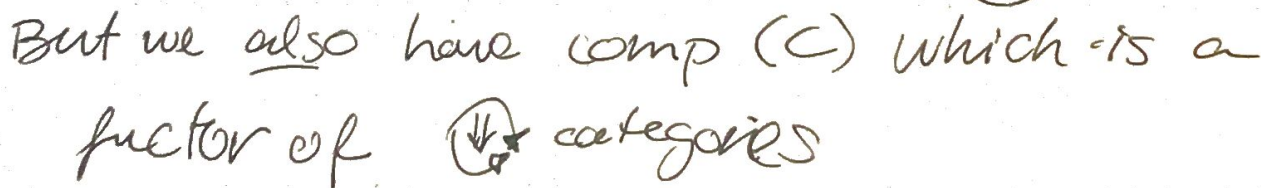 But we also have comp (C) which is a
fuctor of ⇓ categories